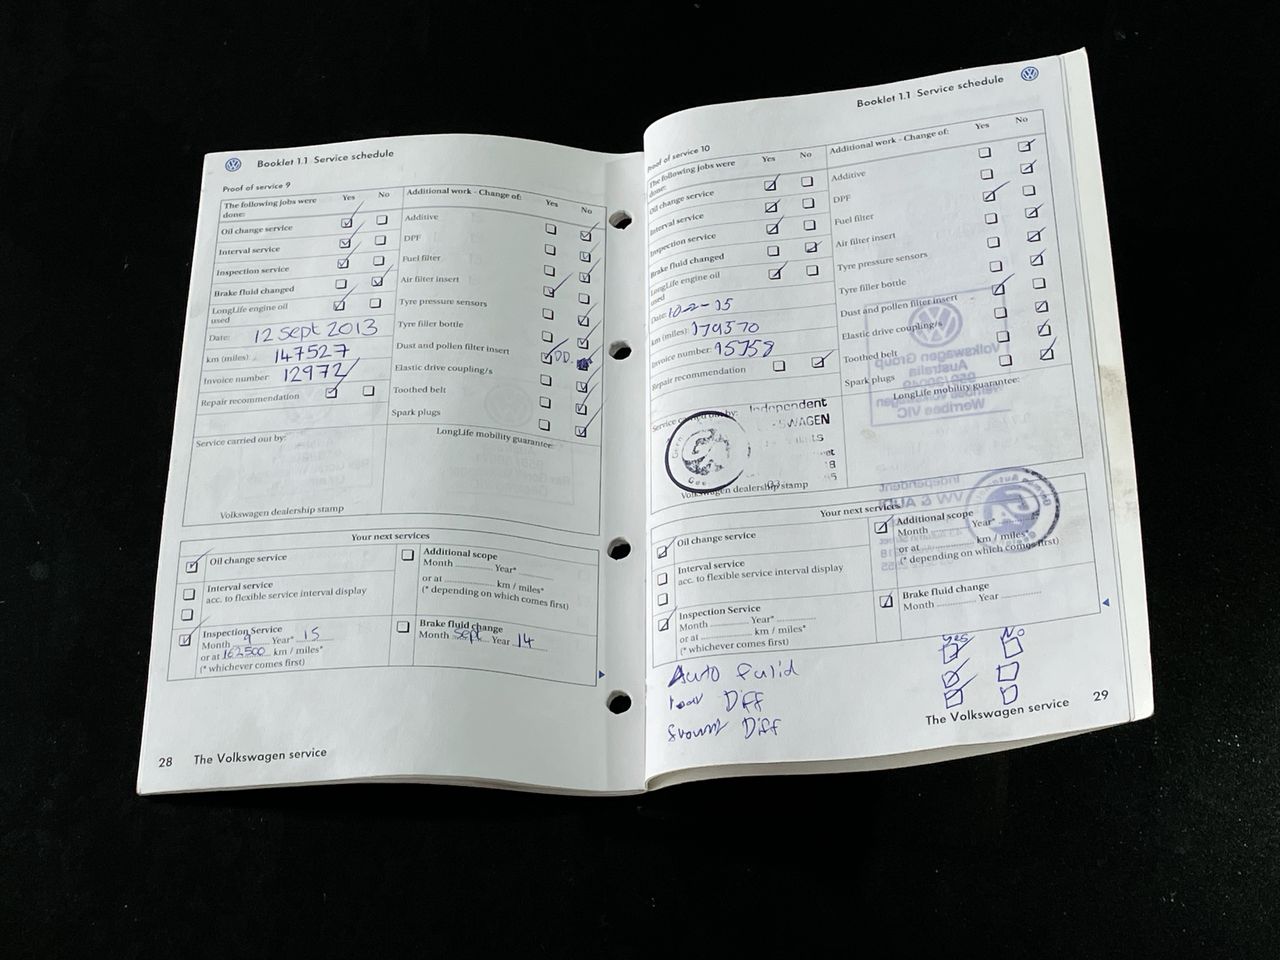 Booklet 1.1 Service schedule
Proof of service 9
The following jobs were done: Yes No
Oil change service
Interval service
Inspection service
Brake fluid changed
LongLife engine oil used
Date: 12 Sept 2013
km (miles): 147527
Invoice number: 12972
Repair recommendation
Additional work - Change of: Yes No
Additive
DPF
Fuel filter
Air filter insert
Tyre pressure sensors
Tyre filler bottle
Dust and pollen filter insert
Elastic drive coupling/s
Toothed belt
Spark plugs
Service carried out by:
Volkswagen dealership stamp
LongLife mobility guarantee:
Your next services
Oil change service
Interval service
acc. to flexible service interval display
Inspection Service
Month 9 Year* 15
or at 162500 km / miles*
(* whichever comes first)
Additional scope
Month Year*
or at km / miles*
(* depending on which comes first)
Brake fluid change
Month Sept Year 14
28 The Volkswagen service
Booklet 1.1 Service schedule
Proof of service 10
The following jobs were done: Yes No
Oil change service
Interval service
Inspection service
Brake fluid changed
LongLife engine oil used
Date: 10-2-15
km (miles): 179370
Invoice number: 95758
Repair recommendation
Additional work - Change of: Yes No
Additive
DPF
Fuel filter
Air filter insert
Tyre pressure sensors
Tyre filler bottle
Dust and pollen filter insert
Elastic drive coupling/s
Toothed belt
Spark plugs
Service carried out by:
Independent
Volkswagen dealership stamp
LongLife mobility guarantee:
Your next services
Oil change service
Interval service
acc. to flexible service interval display
Inspection Service
Month Year*
or at km / miles*
(* whichever comes first)
Additional scope
Month Year*
or at km / miles*
(* depending on which comes first)
Brake fluid change
Month Year
Yes No
Auto fulid
rear Diff
frount Diff
The Volkswagen service 29